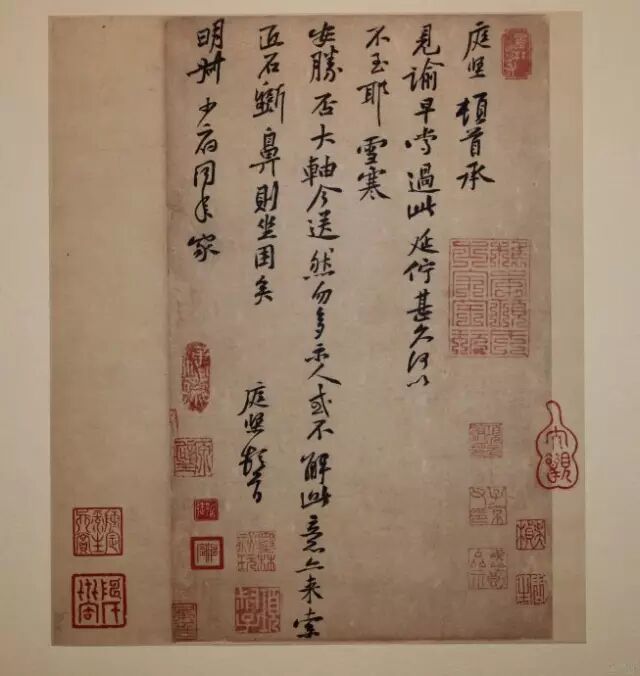 庭堅頓首承
見諭早常過此延佇甚久何以
不至耶雪寒
安勝否大軸今送然勿多示人或不解此意亦来索
匠石斵鼻則坐困矣
庭堅頓首
明叔少府同年家